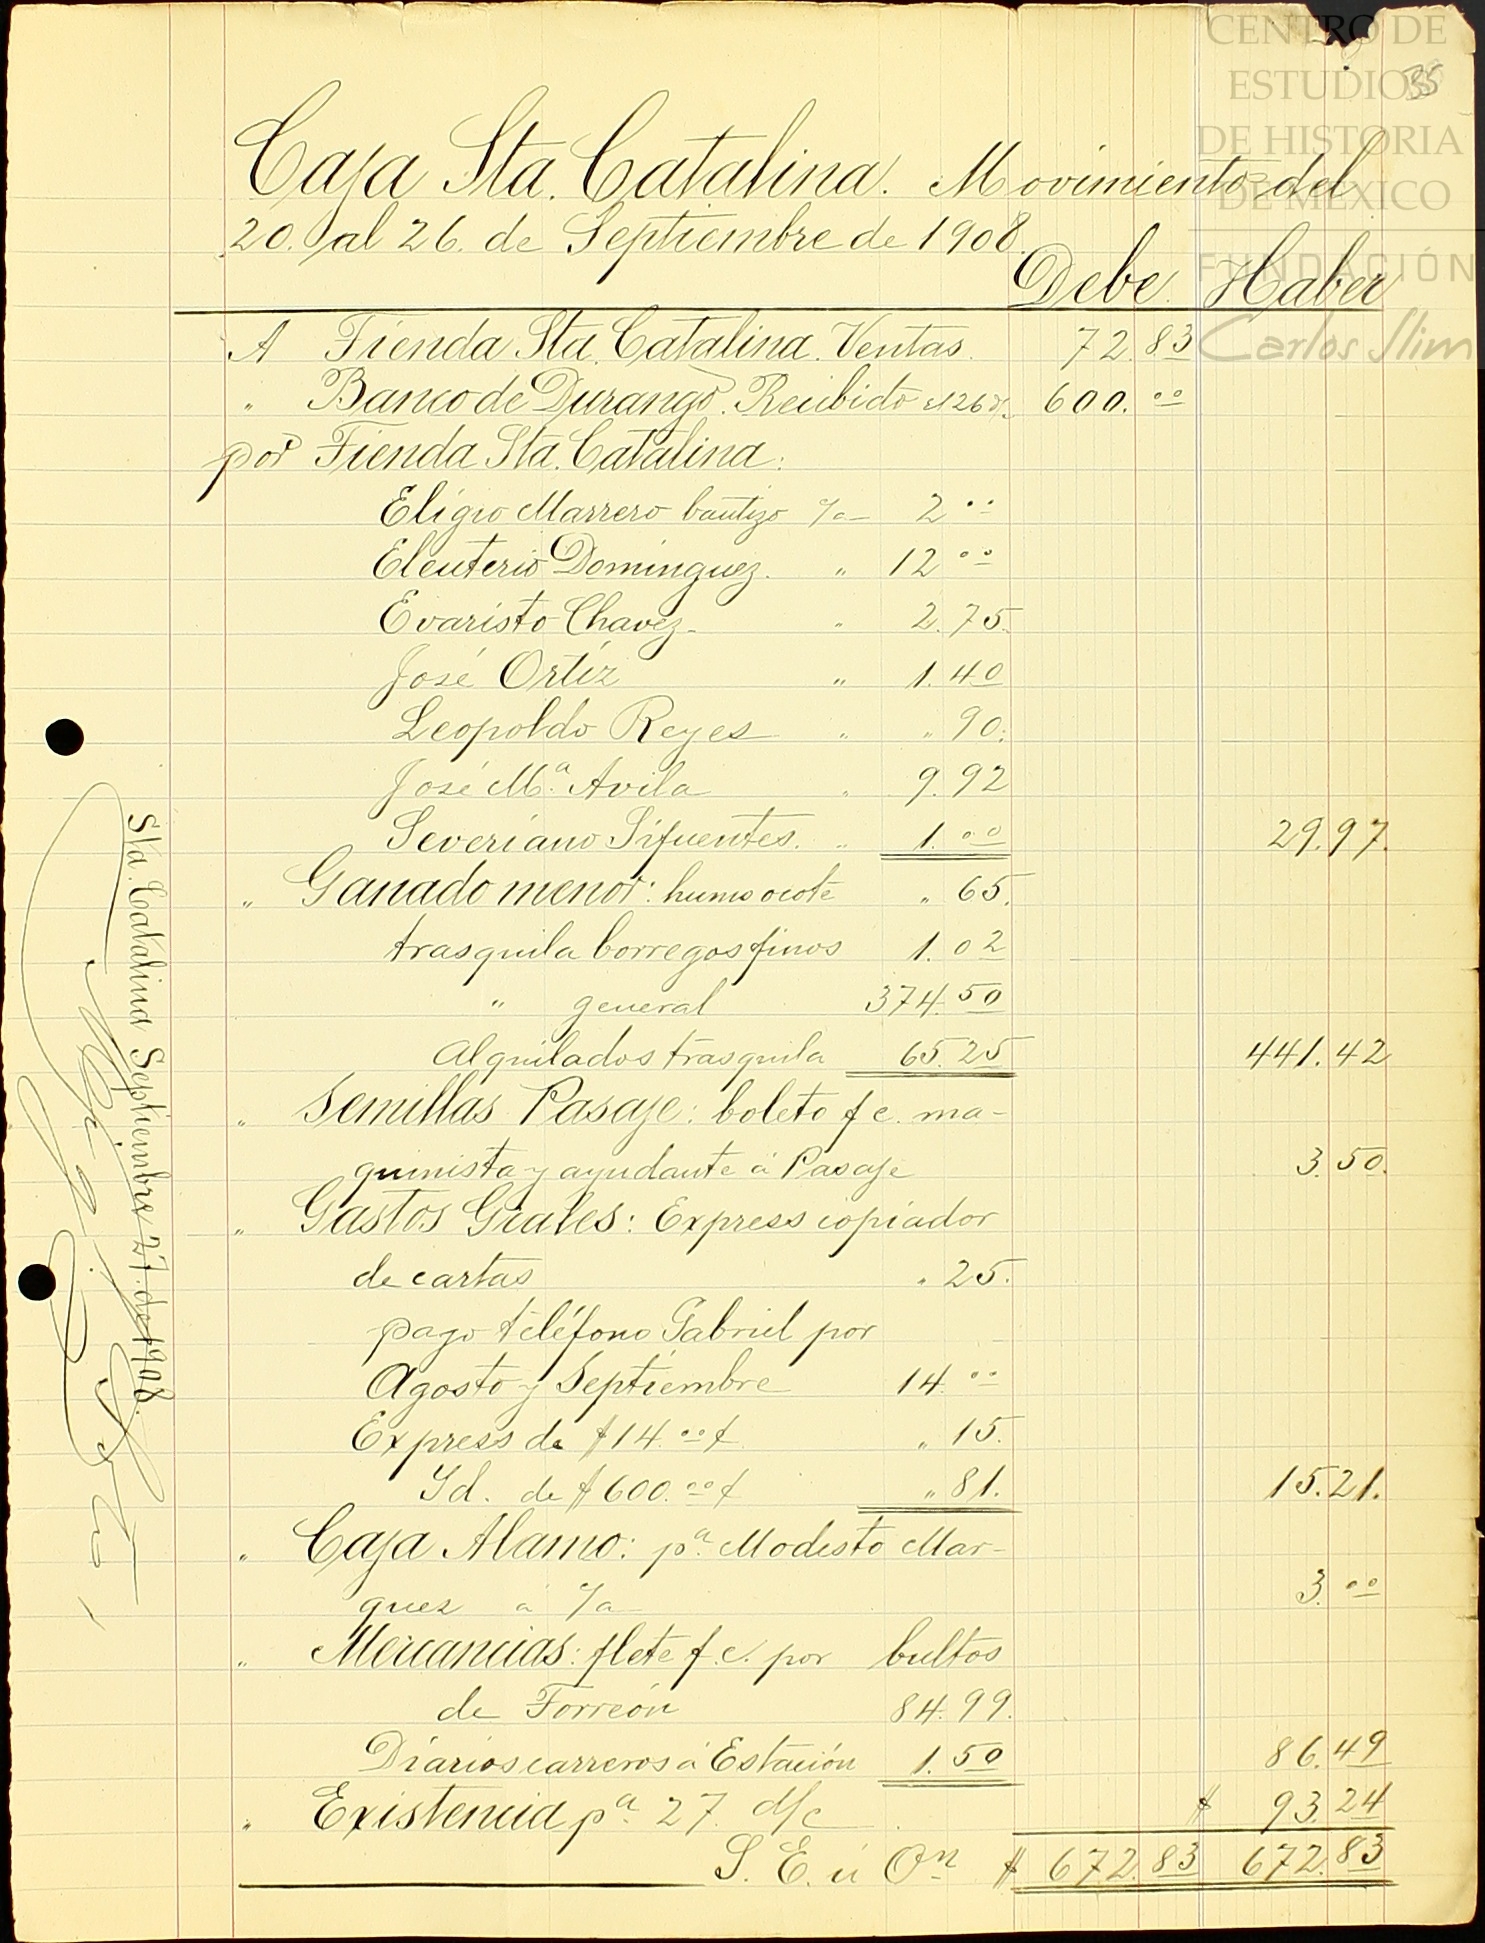 CENTRO DE
ESTUDIOS
DE HISTORIA
DE MÉXICO
FUNDACIÓN
Carlos Slim
35
Caja Sta. Catalina. Movimiento del
20. al 26. de Septiembre de 1908.
Debe. Haber
A Tienda Sta. Catalina. Ventas. 72.83
" Banco de Durango. Recibido el 26 600.00
por Tienda Sta. Catalina:
Eligio Marrero bautizo 2.00
Eleuterio Dominguez. " 12.00
Evaristo Chavez. " 2.75.
José Ortíz " 1.40
Leopoldo Reyes " " 90.
José Ma. Avila " 9.92
Severiano Sifuentes. " 1.00 29.97.
" Ganado menor: humo ocote " 65.
trasquila borregos finos 1.02
" general 374.50
Alquilados trasquila 65.25 441.42
" Semillas Pasaje: boleto f c. ma-
quinista y ayudante á Pasaje 3.50.
" Gastos Grales: Express copiador
de cartas " 25.
pago teléfono Gabriel por
Agosto y Septiembre 14.00
Express de $14.00 " 15.
Id. de $600.00 " 81. 15.21.
" Caja Alamo: pa. Modesto Mar-
quez 3.00
" Mercancias: flete f.c. por bultos
de Torreón 84.99.
Diarios carreros á Estación 1.50 86.49
" Existencia pa. 27. $ 93.24
S. E. ú On $ 672.83 672.83
Sta. Catalina Septiembre 27. de 1908.